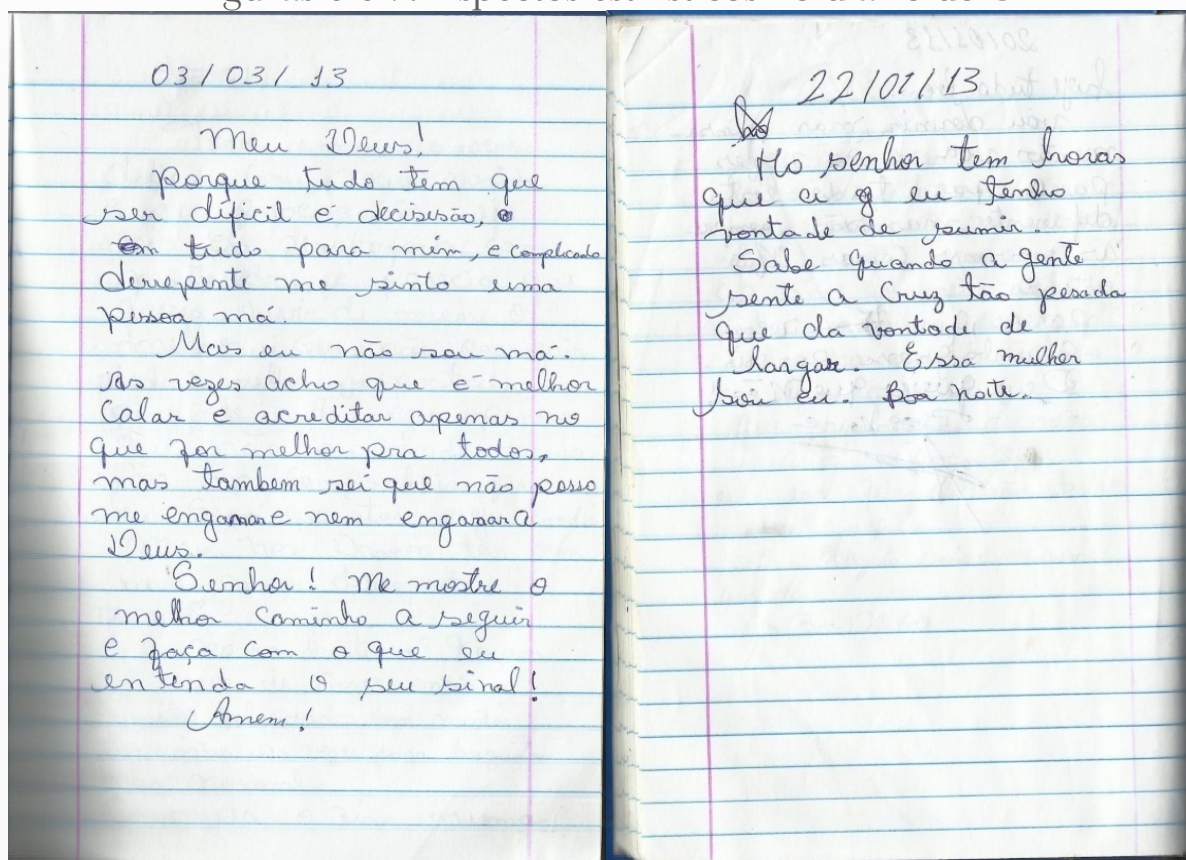 03/03/13
Meu Deus!
Porque tudo tem que
ser díficil é decisesão, e
tudo para mim, e complicado
derrepente me sinto uma
pessoa má.
Mais eu não sou má.
As vezes acho que é melhor
Calar e acreditar apenas no
que for melhor pra todos,
mas tambem sei que não posso
me enganar e nem enganar a
Deus.
Senhor! Me mostre o
melhor Caminho a seguir
e faça com o que eu
entenda o seu sinal!
Amem!
22/01/13
Ho senhor tem horas
que a g eu tenho
vontade de sumir.
Sabe quando a gente
sente a Cruz tão pesada
que da vontade de
largar. Essa mulher
sou eu. Boa noite.